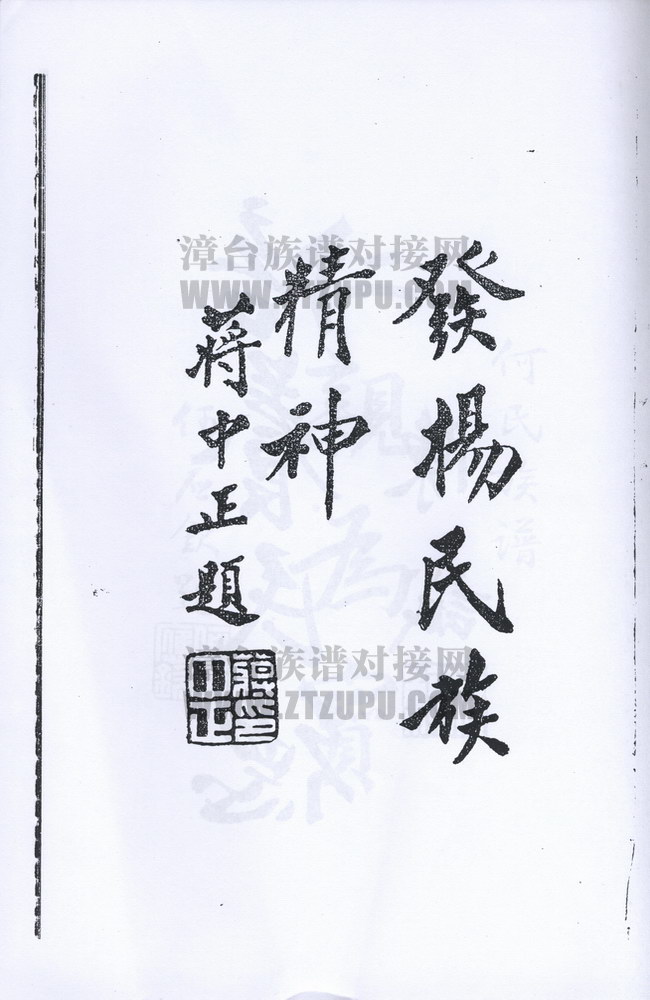 發揚民族
精神
蔣中正題
蔣中正印
漳台族谱对接网
WWW.ZTZUPU.COM
漳台族谱对接网
WWW.ZTZUPU.COM
何氏族譜